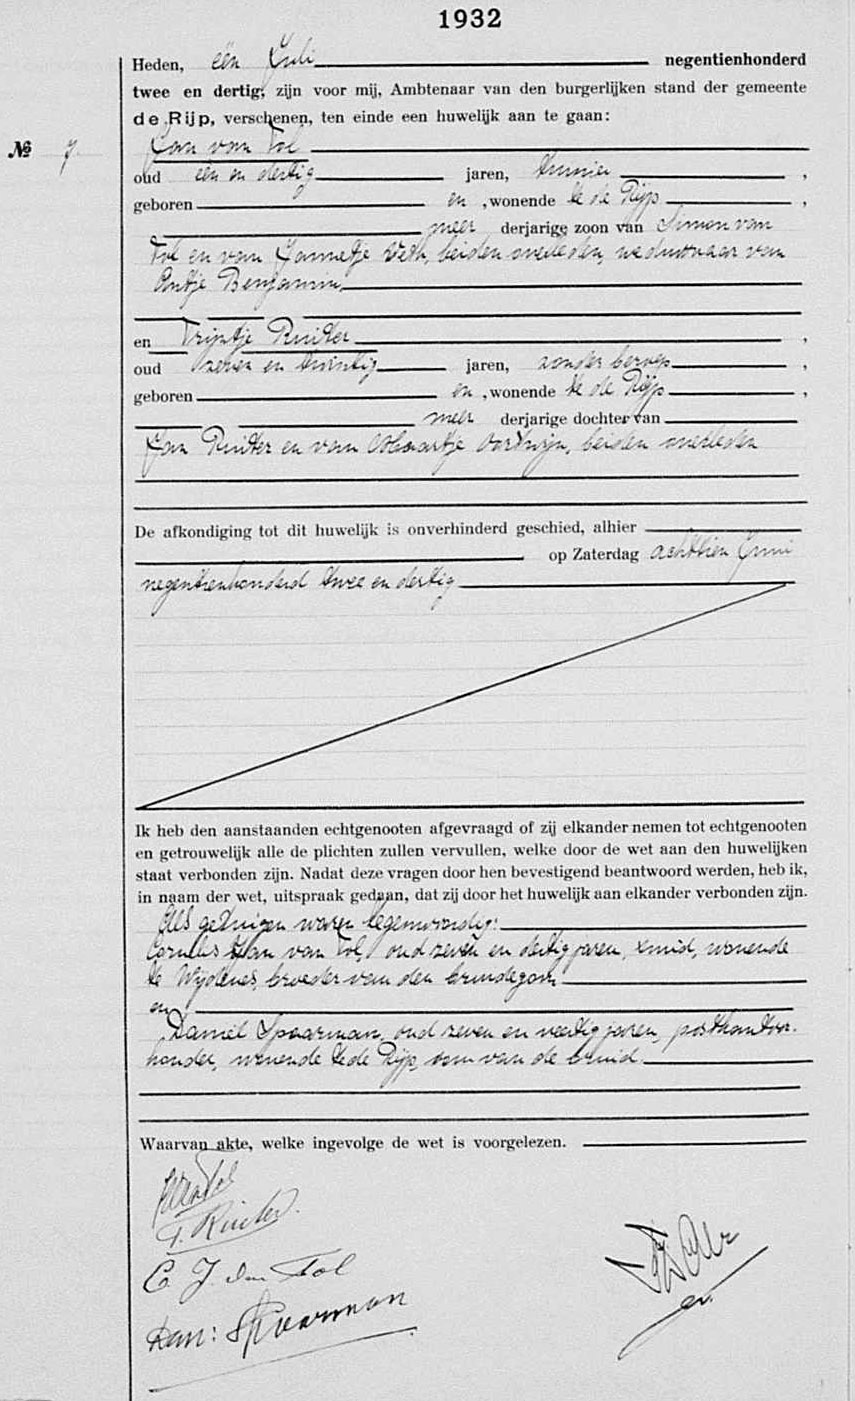 1932
Heden, één Juli negentienhonderd
twee en dertig, zijn voor mij, Ambtenaar van den burgerlijken stand der gemeente
de Rijp, verschenen, ten einde een huwelijk aan te gaan:
№ 7. Jan van Tol
oud één en dertig jaren, ,
geboren en , wonende te de Rijp ,
meer derjarige zoon van Simon van
Tol en van Jannetje Veth, beiden overleden, weduwnaar van
Antje Benjamin,
en Trijntje Ruiter ,
oud zeven en twintig jaren, zonder beroep ,
geboren en , wonende te de Rijp ,
meer derjarige dochter van
Jan Ruiter en van beiden overleden
De afkondiging tot dit huwelijk is onverhinderd geschied, alhier
op Zaterdag achttien Juni
negentienhonderd twee en dertig
Ik heb den aanstaanden echtgenooten afgevraagd of zij elkander nemen tot echtgenooten
en getrouwelijk alle de plichten zullen vervullen, welke door de wet aan den huwelijken
staat verbonden zijn. Nadat deze vragen door hen bevestigend beantwoord werden, heb ik,
in naam der wet, uitspraak gedaan, dat zij door het huwelijk aan elkander verbonden zijn.
Als getuigen waren tegenwoordig:
Cornelis Jan van Tol, oud zeven en dertig jaren, smid, wonende
te Wijdenes, broeder van den bruidegom
en
Daniël Spaarman, oud zeven en veertig jaren, postkantoor-
houder, wonende te de Rijp, oom van de bruid
Waarvan akte, welke ingevolge de wet is voorgelezen.
J van Tol
T. Ruiter.
C J. van Tol
Dan: Spaarman